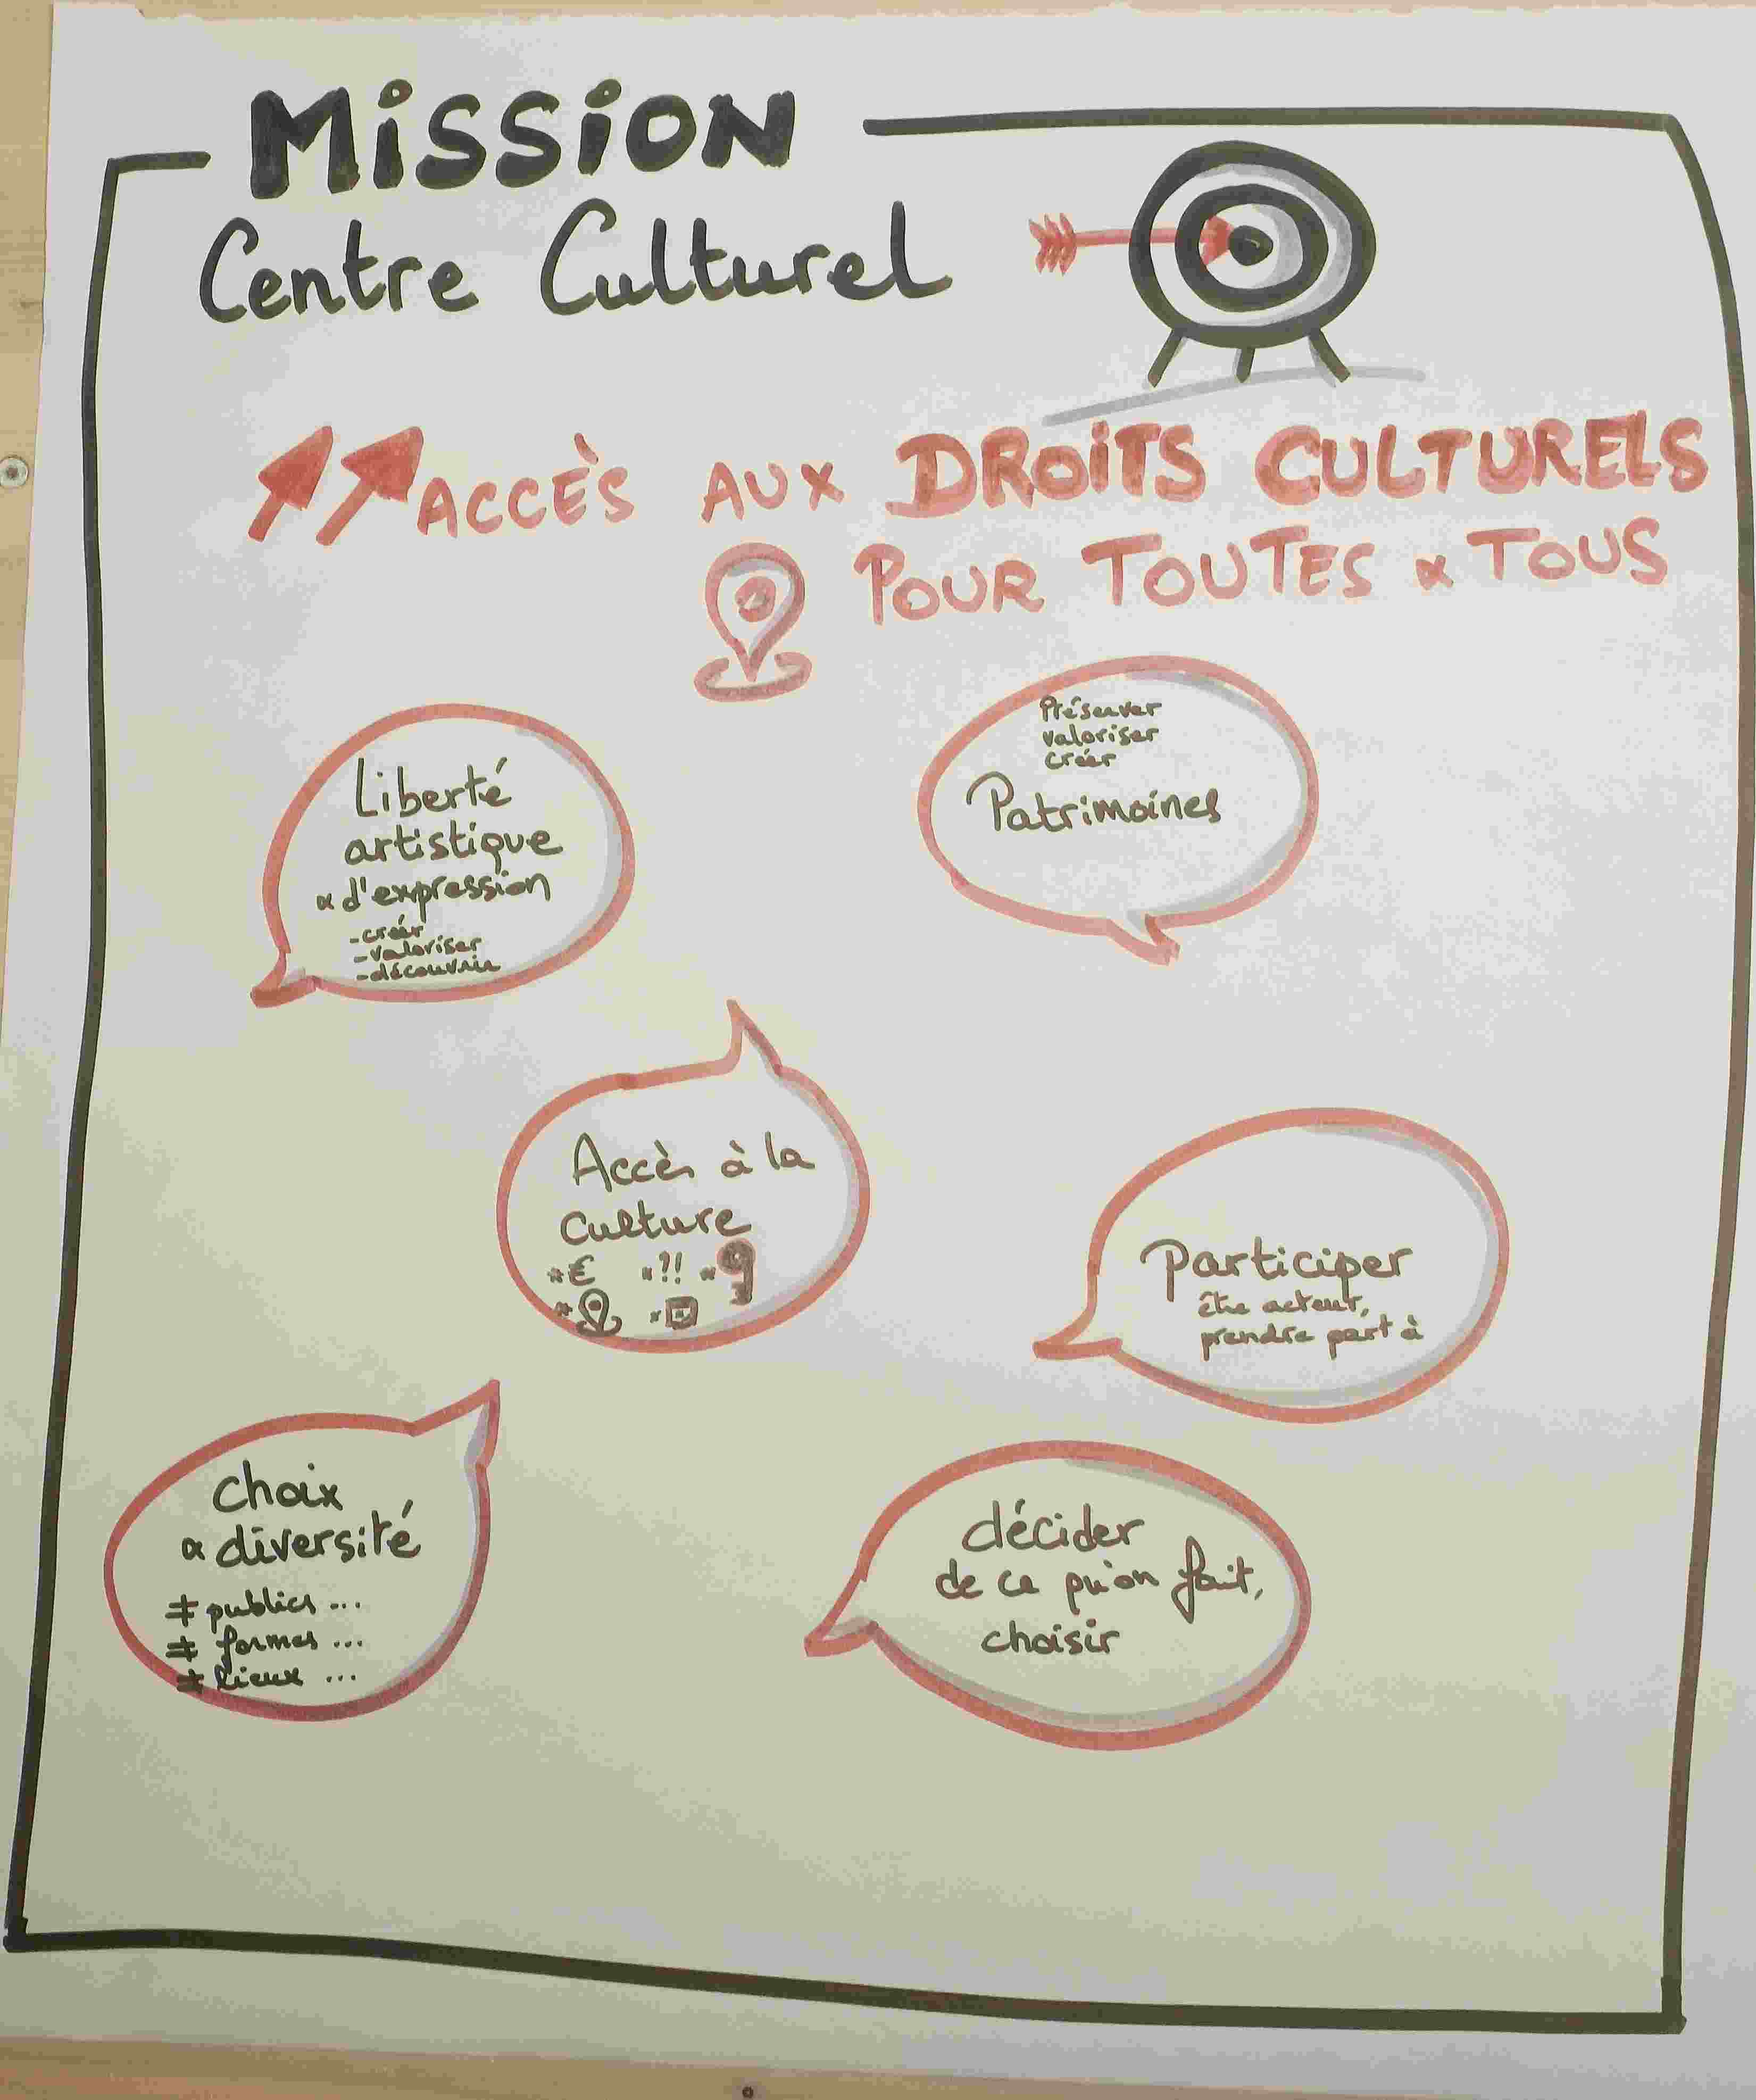 MiSSiON
Centre Culturel
ACCÈS AUX DROiTS CULTURELS
POUR TOUTES & TOUS
Liberté
artistique
& d'expression
- créer
- valoriser
- découvrir
Préserver
valoriser
créer
Patrimoines
Accès à la
Culture
* € * ?! *
Participer
être acteur,
prendre part à
choix
& diversité
≠ publics ...
≠ formes ...
≠ lieux ...
décider
de ce qu'on fait,
choisir